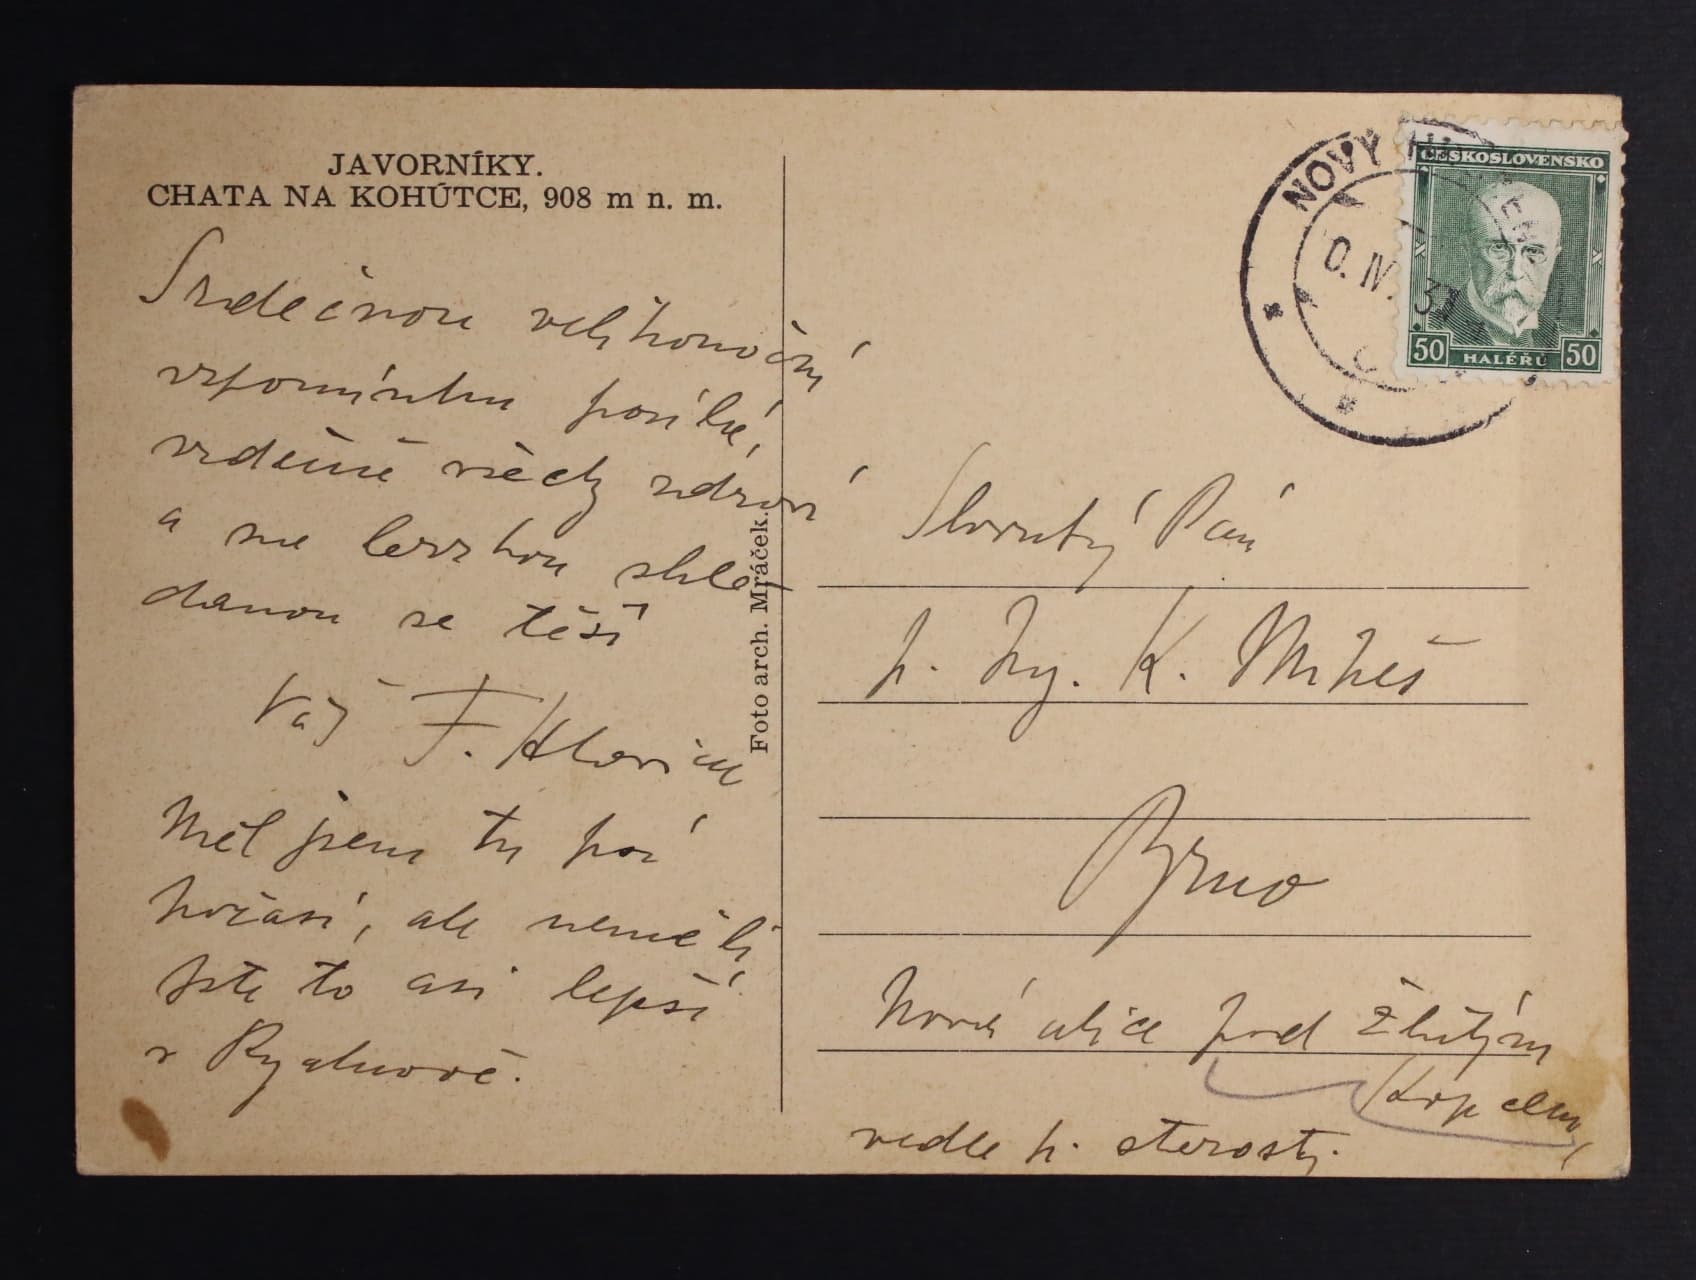 JAVORNÍKY.
CHATA NA KOHÚTCE, 908 m n. m.
Srdečnou velikonoční
vzpomínku posílá,
srdečně všechny zdraví
a na brzkou shle-
danou se těší
Váš F.
Měl jsem tu psí
počasí, ale neměli
jste to asi lepší
v
Foto arch. Mráček.
NOVÝ
IV. 31
ČESKOSLOVENSKO
50 HALÉŘŮ 50
Slovutný Pán
p. Ing. K. Mikeš
Brno
Nová ulice pod Žlutým
kopcem,
vedle p. starosty.